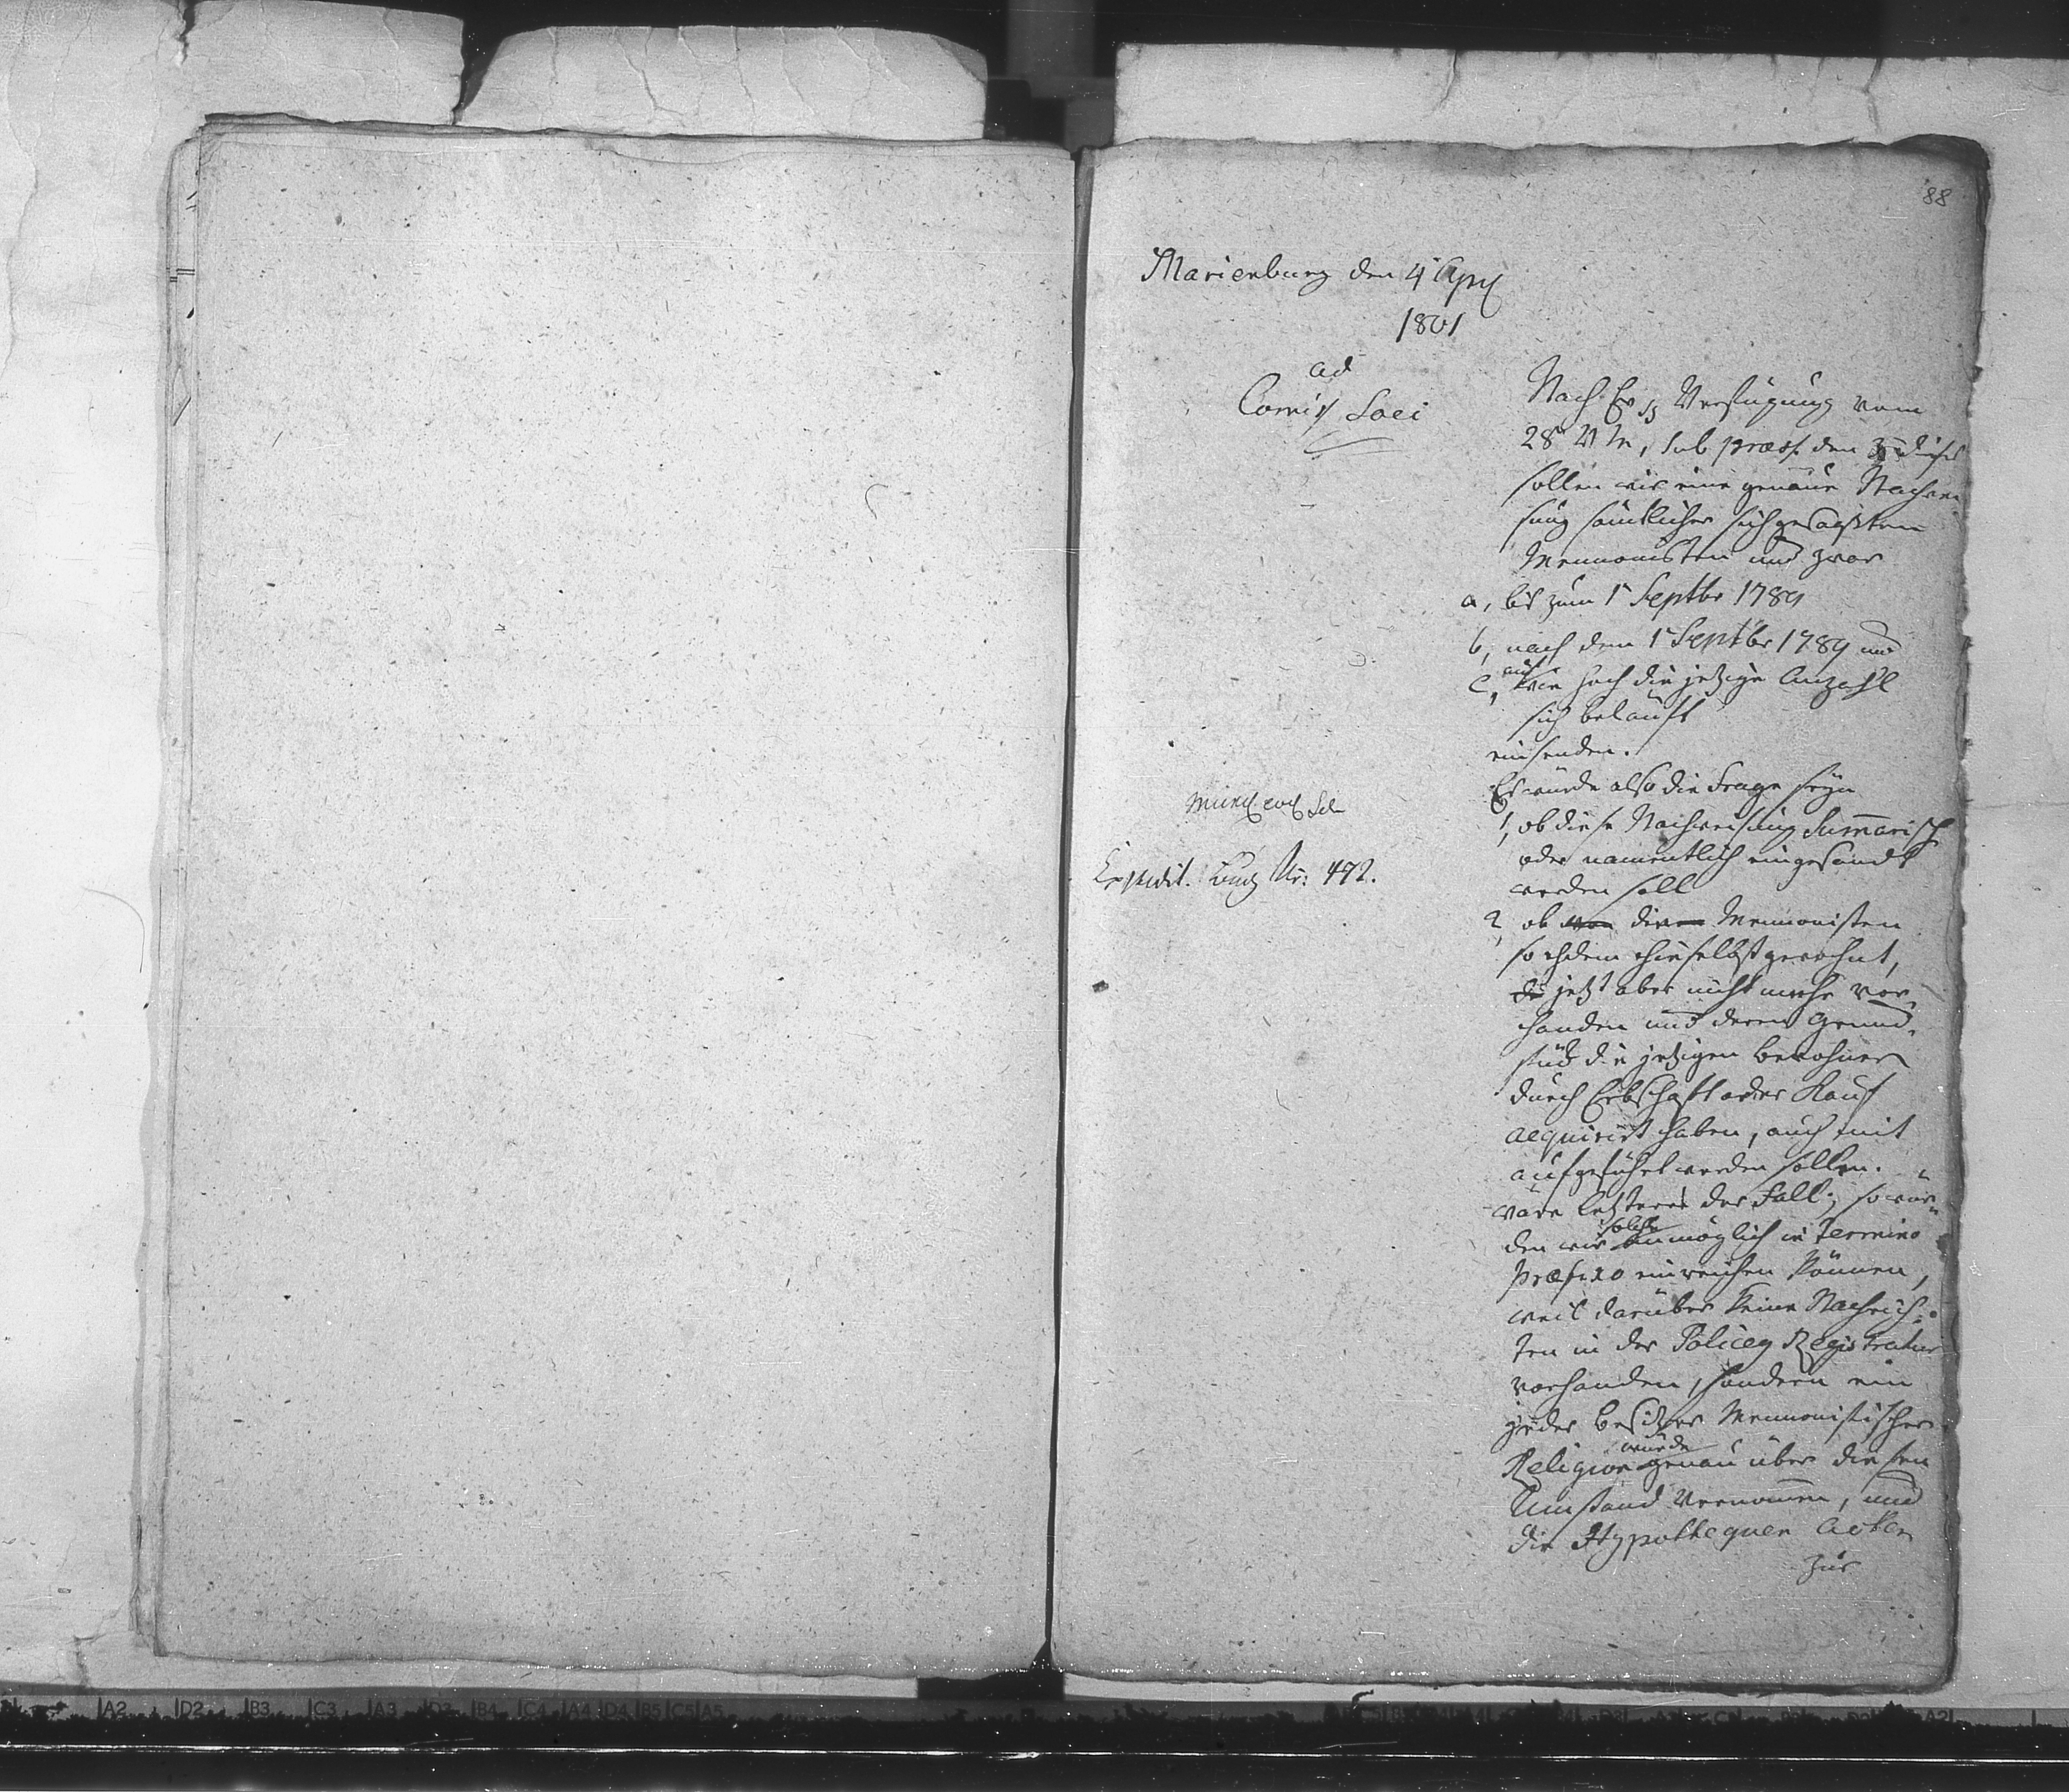 88
Marienburg den 4t Apr
1801
ad
Comiss Loci
Nach Ew Verfügung vom
28t v M, sub præs: den 3t dieses
sollen wir eine genaue Nachwei
sung sämtlicher sich
Mennonisten und zwar
a, bis zum 1t Septbr 1789
b, nach dem 1t Septbr 1789 und
auf
c, wie hoch die jetzige Anzahl
sich beläuft
einsenden.
Es würde also die Frage seyn
1, ob diese Nachweisung Summarisch
oder namentlich eingesandt
werden soll
2, ob von die Mennonisten
so ehdem hieselbst gewohnt,
die jetzt aber nicht mehr vor-
handen und deren Grund-
stück die jetzigen Bewohner
durch Erbschaft oder Kauf
acquirirt haben, auch mit
aufgeführt werden sollen.
Wäre letzteres der Fall; so wür-
solche
den wir unmöglich in Termino
præfixo einreichen können,
weil darüber keine Nachrich-
ten in der Policey Registratur
vorhanden, sondern ein
jeder Besitzer Mennonistischer
würde
Religion genau über diesen
Umstand vernommen, und
die Hypothequen Acten
zur
Mund
Expedit. Buch Nr: 472.